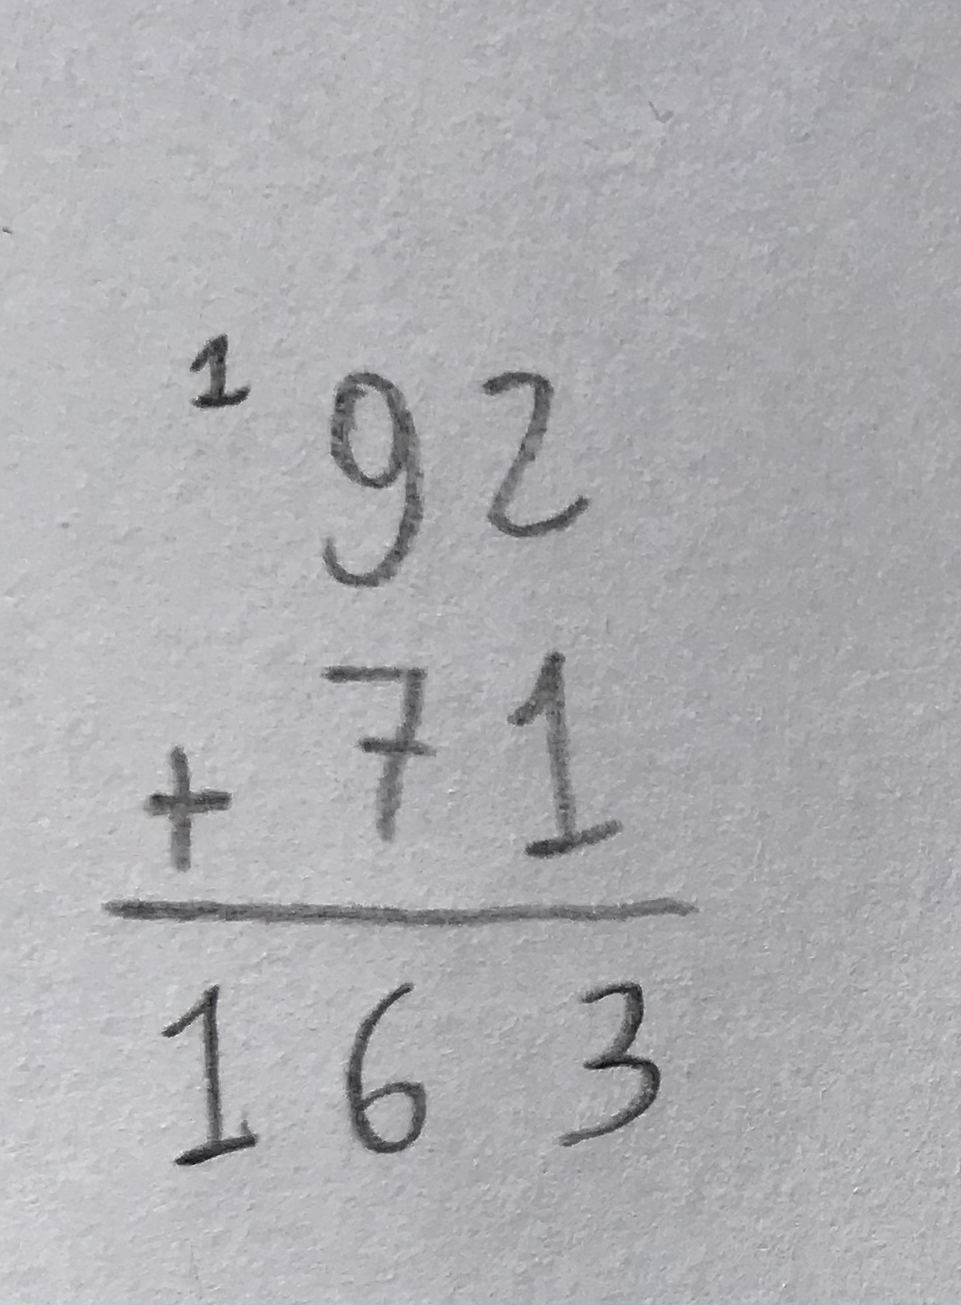 1 92
+ 71
163